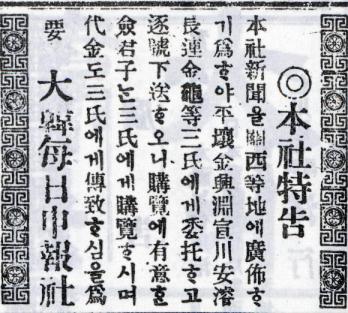 ◎本社特告
本社新聞을關西等地에廣佈ᄒ
기爲ᄒ야平壤金興淵宣川安濬
長連金龜等三氏에게委托ᄒ고
逐號下送ᄒ오니購覽에有意ᄒᆫ
僉君子ᄂᆞᆫ三氏에게購覽ᄒ시며
代金도三氏에게傳致ᄒ심을爲
要
大韓每日申報社